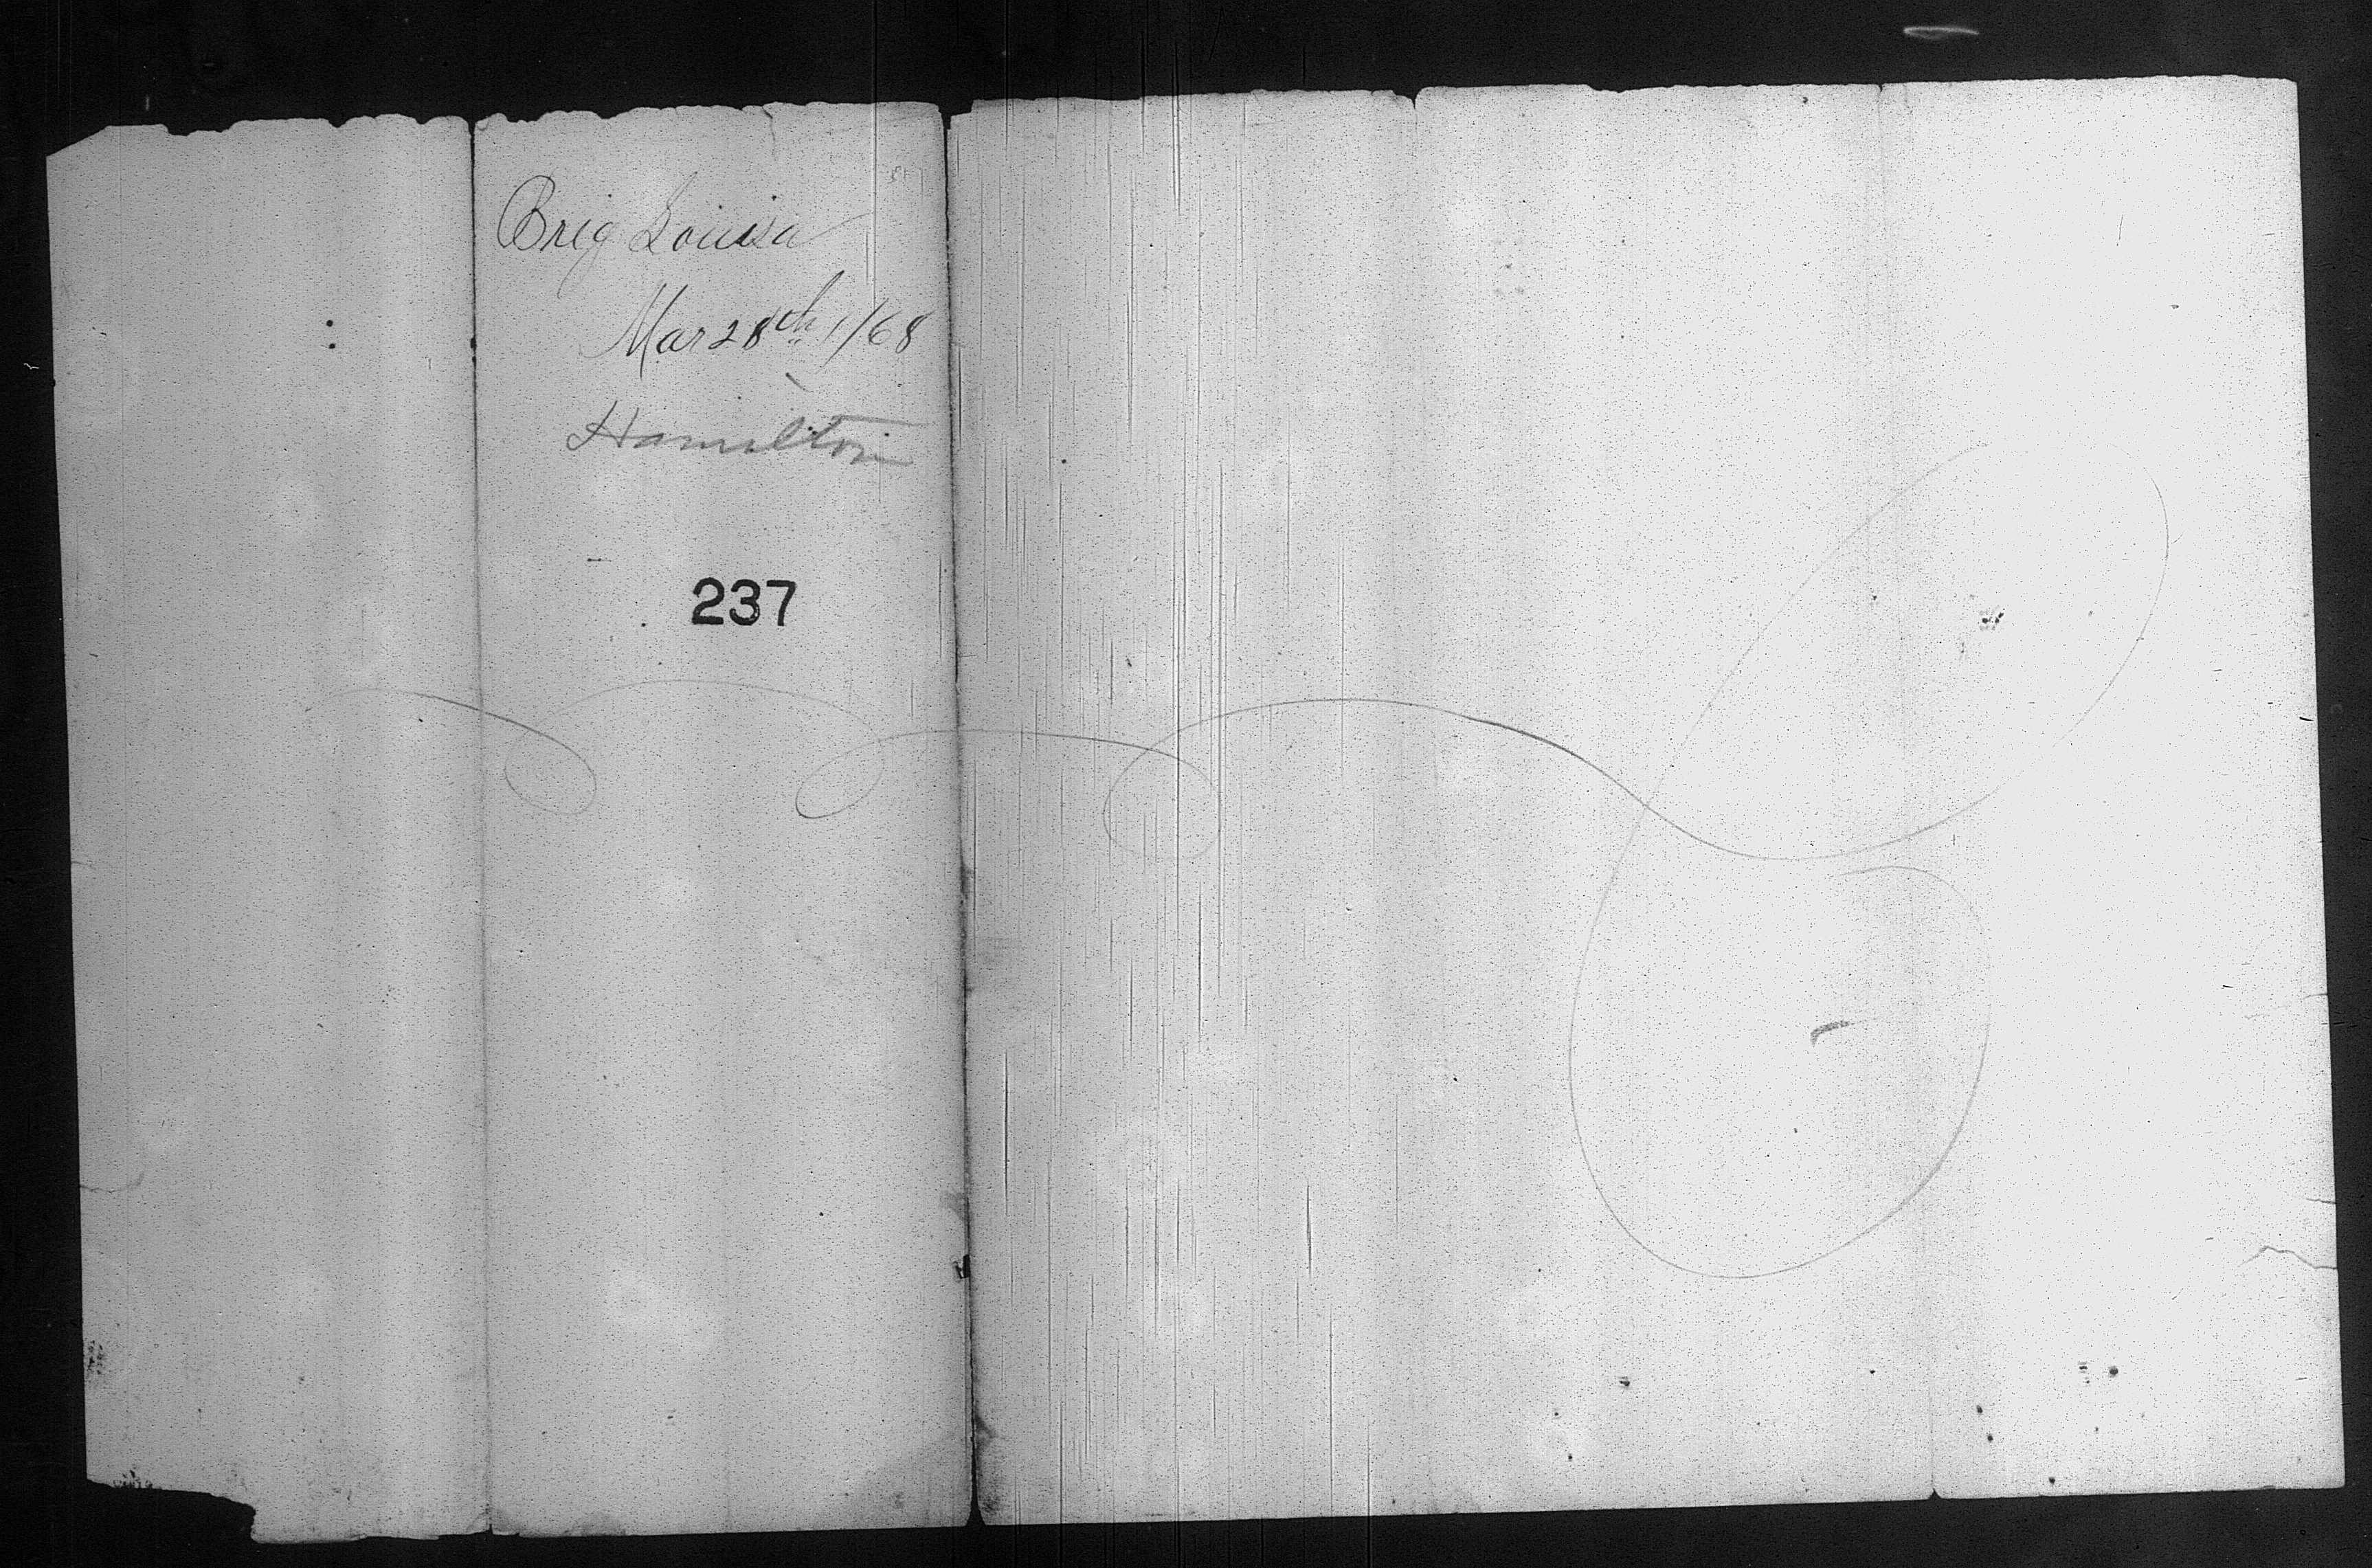 Brig Louisa
Mar 28th 1/68
Hamilton
237